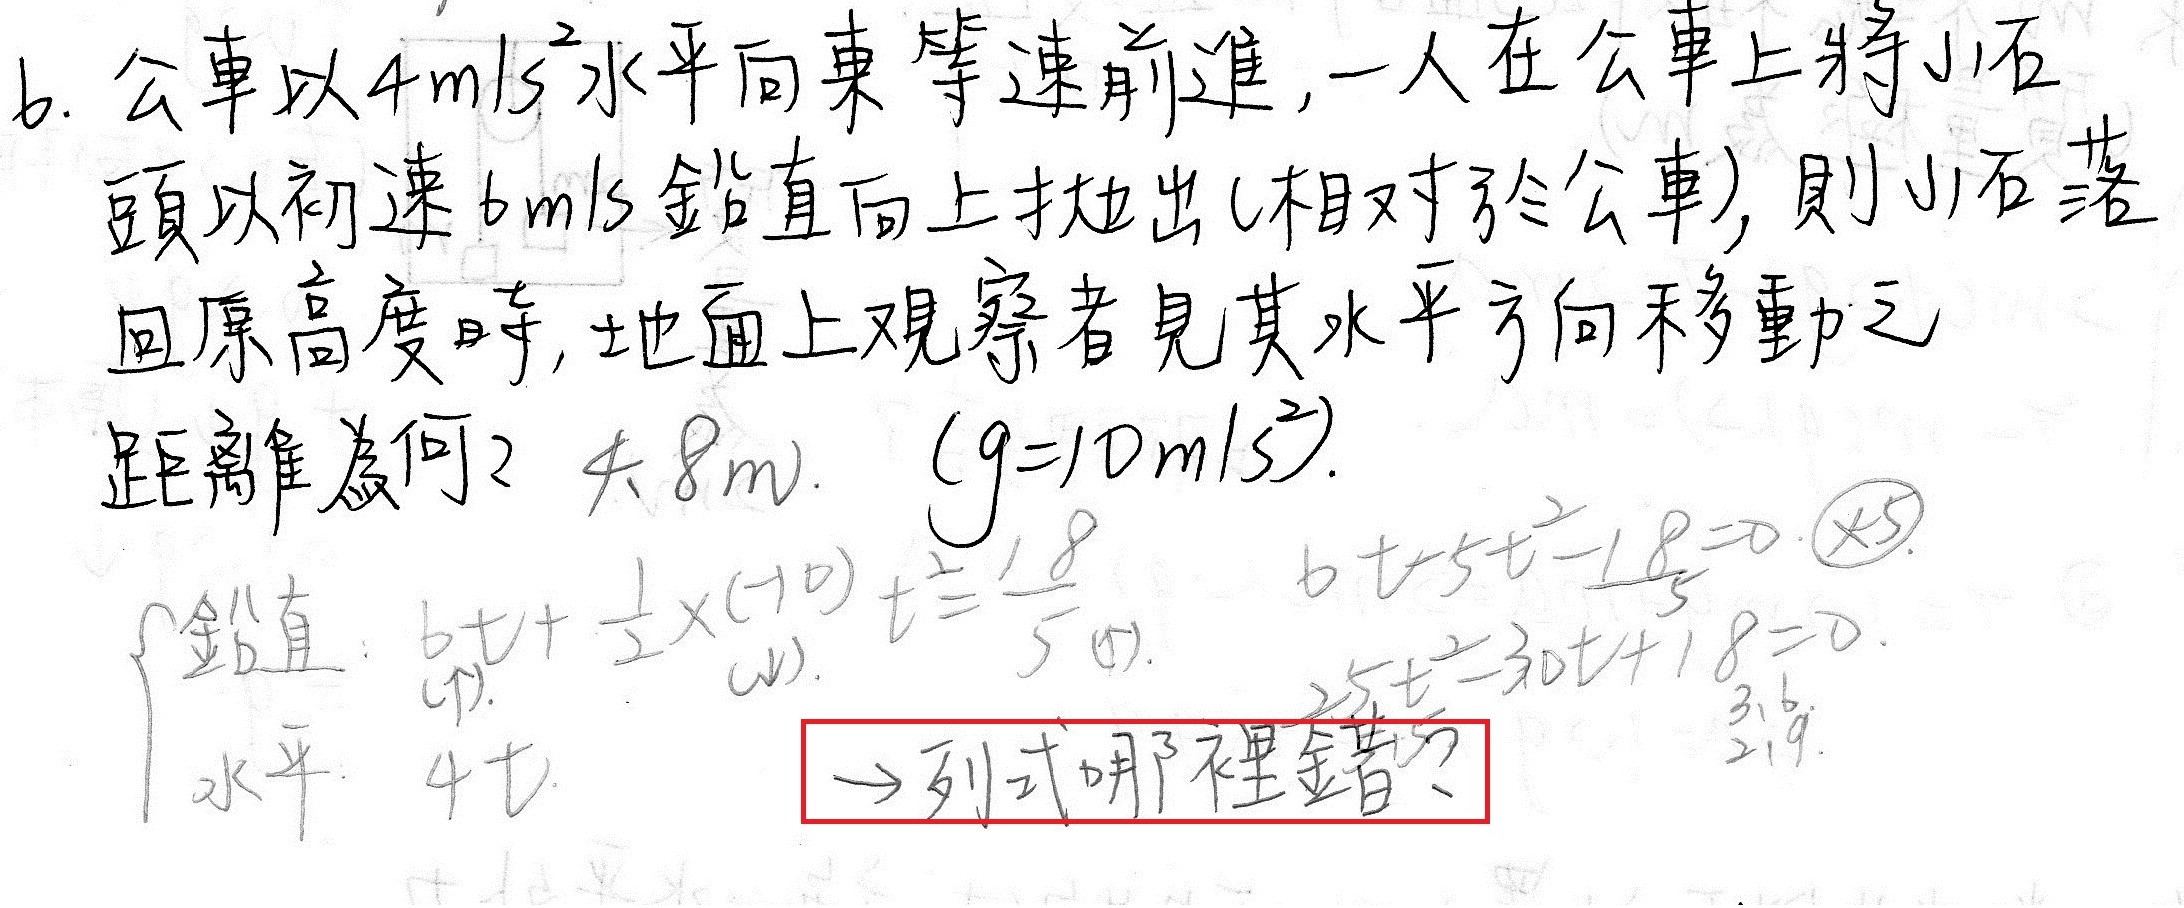 6. 公車以4m/s²水平向東等速前進,一人在公車上將小石
頭以初速6m/s鉛直向上拋出(相對於公車),則小石落
回原高度時,地面上觀察者見其水平方向移動之
距離為何? 4.8m. (g=10m/s²).
鉛直: 6t+½×(-10)t²=18/5 (↑).
(↑). (↓).
水平: 4t.
6t-5t²-18/5=0. ×5.
25t²-30t+18=0.
3.6.
2.9.
→列式哪裡錯?